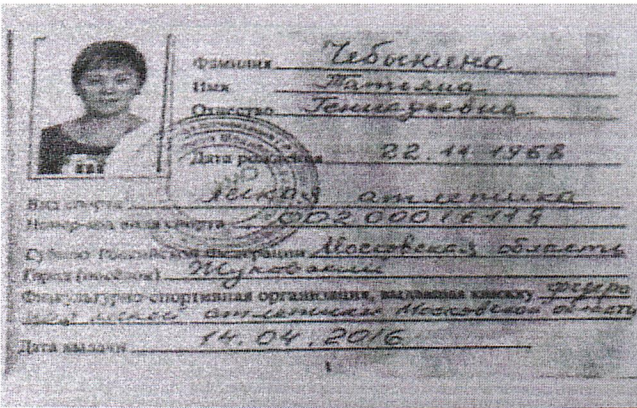 Фамилия Чебыкина
Имя Татьяна
Отчество Геннадьевна
Дата рождения 22.11.1968
Вид спорта легкая атлетика
Номер-код вида спорта 0020001611Я
Субъект Российской Федерации Московская область
Город (посёлок) Жуковский
Физкультурно-спортивная организация, выдавшая книжку федера
ция легкой атлетики Московской области
Дата выдачи 14.04.2016
1